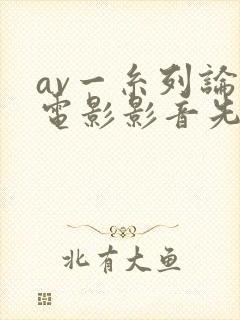 av一系列論
電影影音先
北有大魚